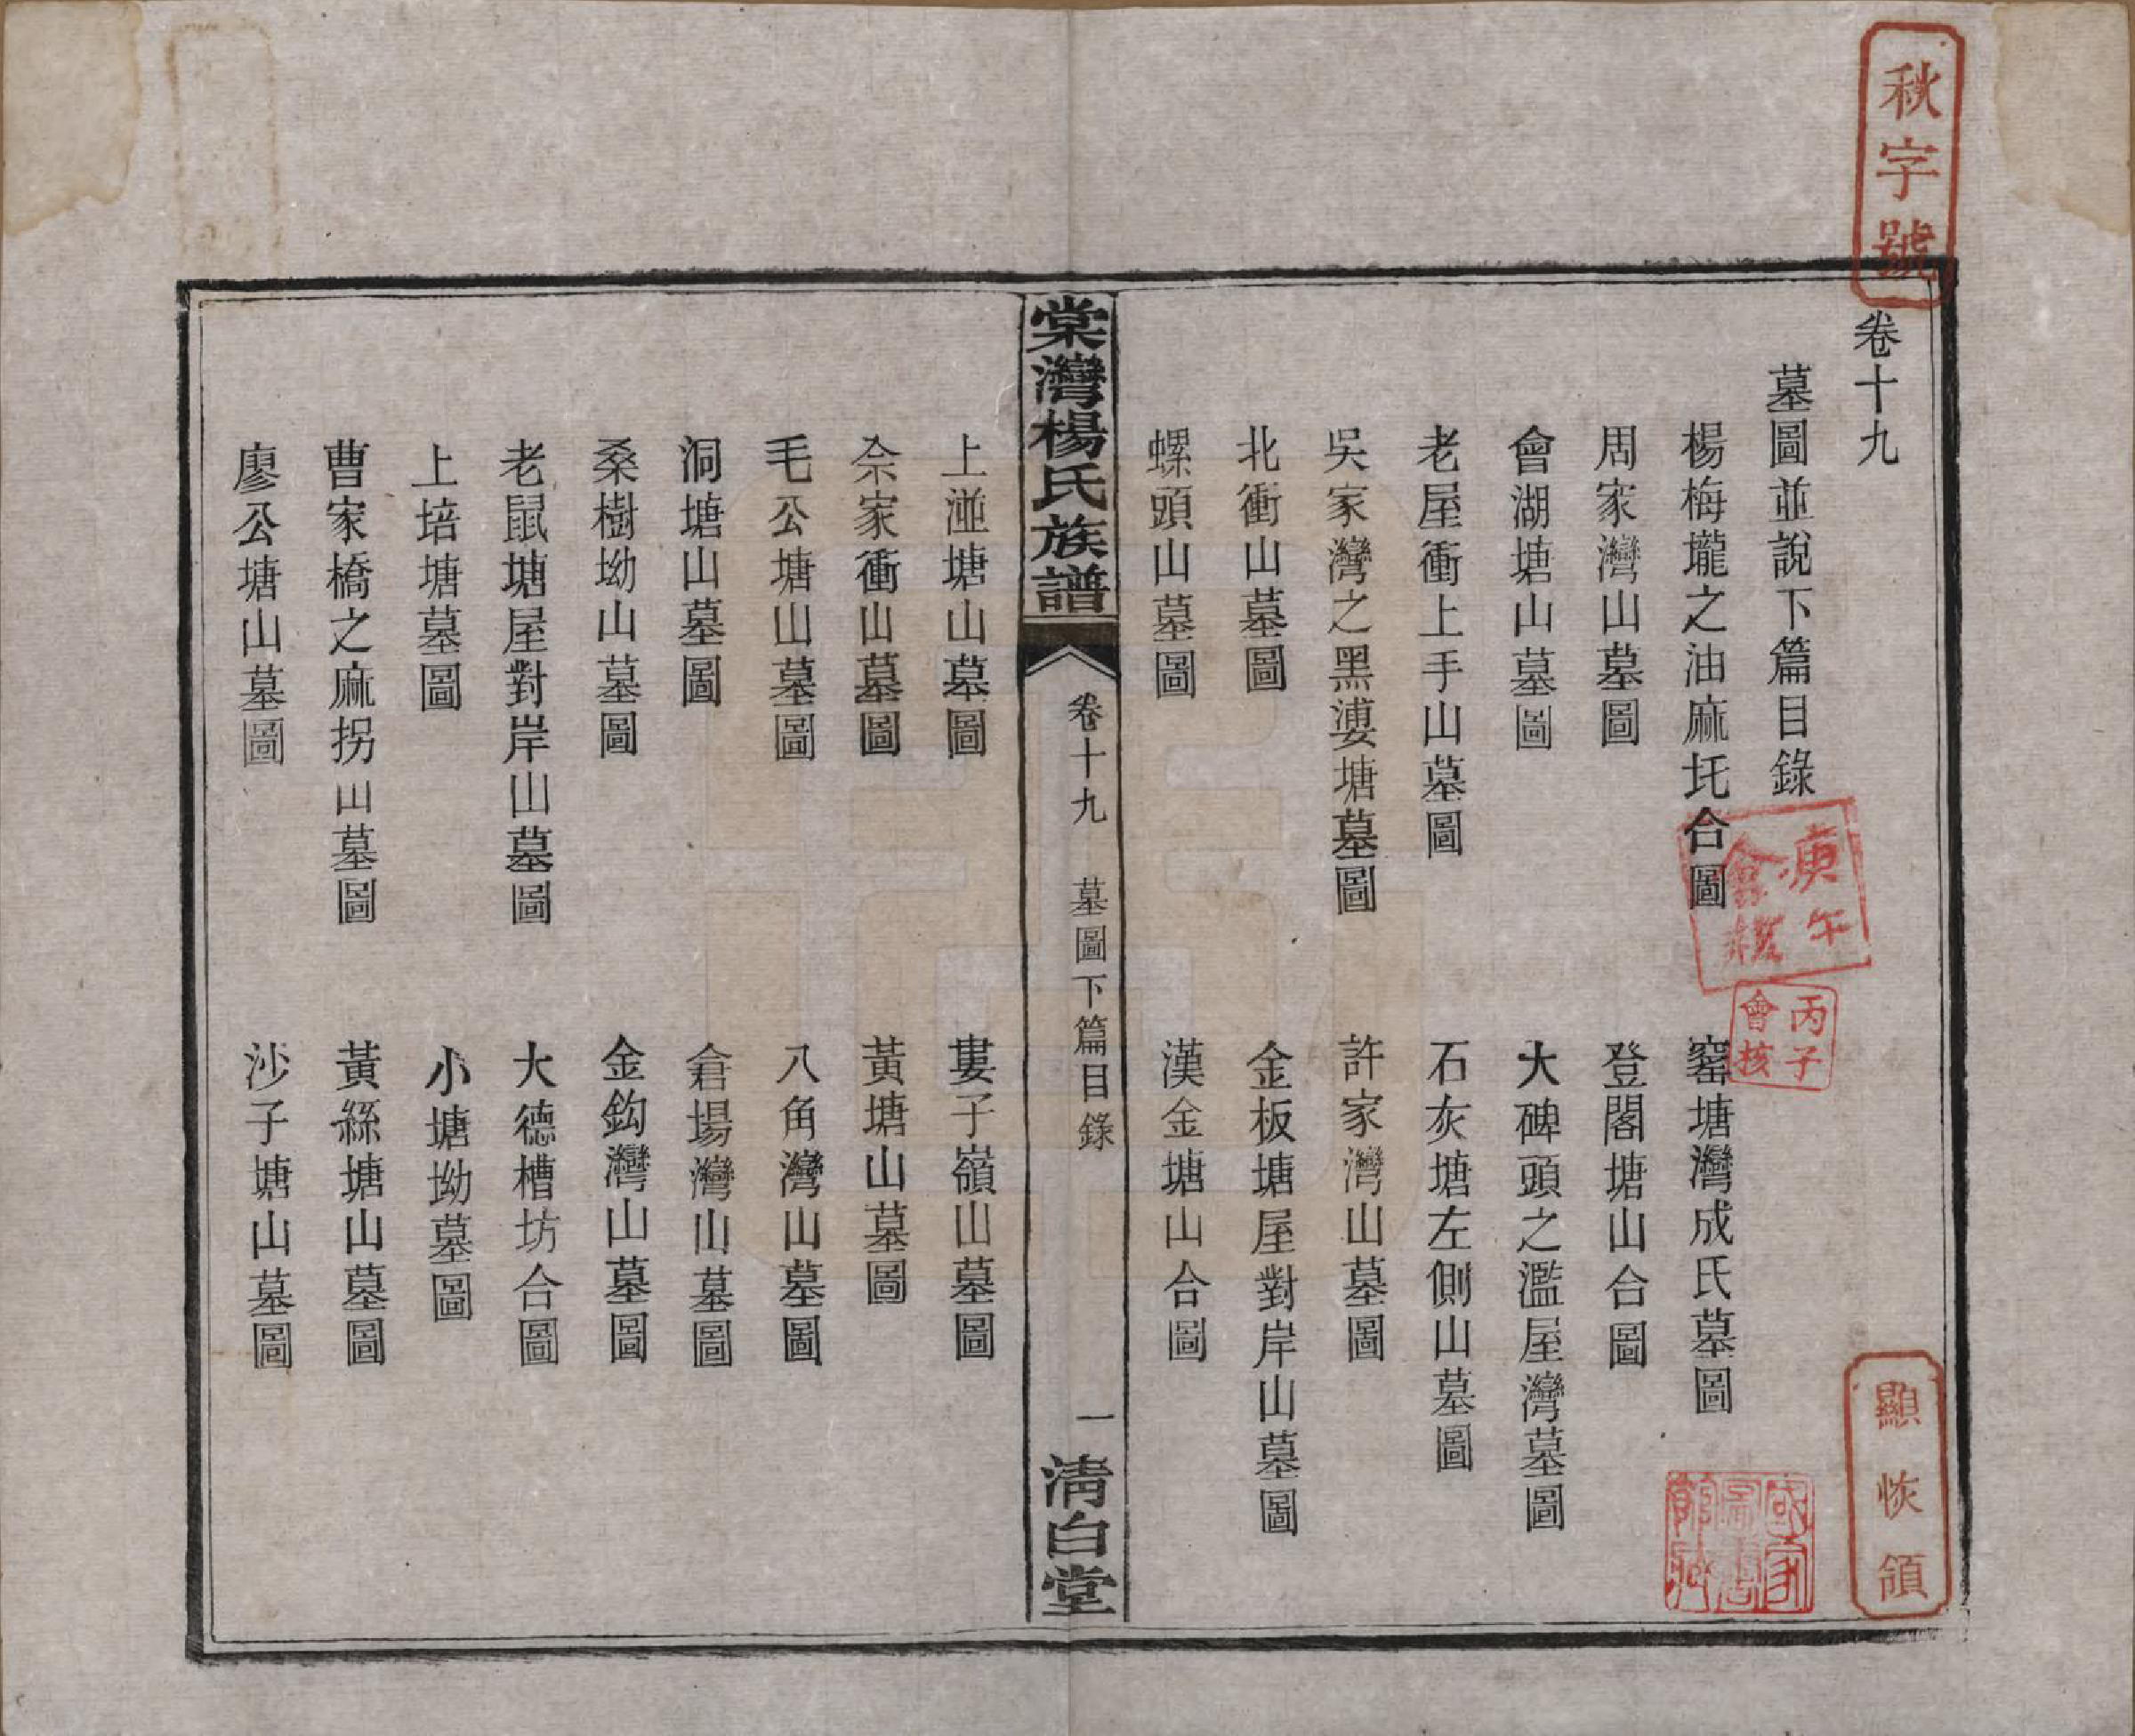 秋字號
卷十九
墓圖並說下篇目錄
楊梅壠之油麻圫合圖
窰塘灣成氏墓圖
周家灣山墓圖
登閣塘山合圖
會湖塘山墓圖
大碑頭之濫屋灣墓圖
老屋衝上手山墓圖
石灰塘左側山墓圖
吳家灣之黑㜑塘墓圖
許家灣山墓圖
北衝山墓圖
金板塘屋對岸山墓圖
螺頭山墓圖
漢金塘山合圖
棠灣楊氏族譜
卷十九
墓圖下篇目錄
一
清白堂
上湴塘山墓圖
婁子嶺山墓圖
佘家衝山墓圖
黃塘山墓圖
毛公塘山墓圖
八角灣山墓圖
洞塘山墓圖
倉場灣山墓圖
桑樹坳山墓圖
金鈎灣山墓圖
老鼠塘屋對岸山墓圖
大德槽坊合圖
上培塘墓圖
小塘坳墓圖
曹家橋之麻拐山墓圖
黃絲塘山墓圖
廖公塘山墓圖
沙子塘山墓圖
庚午
會核
丙子
會核
顯恢領
國家
圖書
館藏